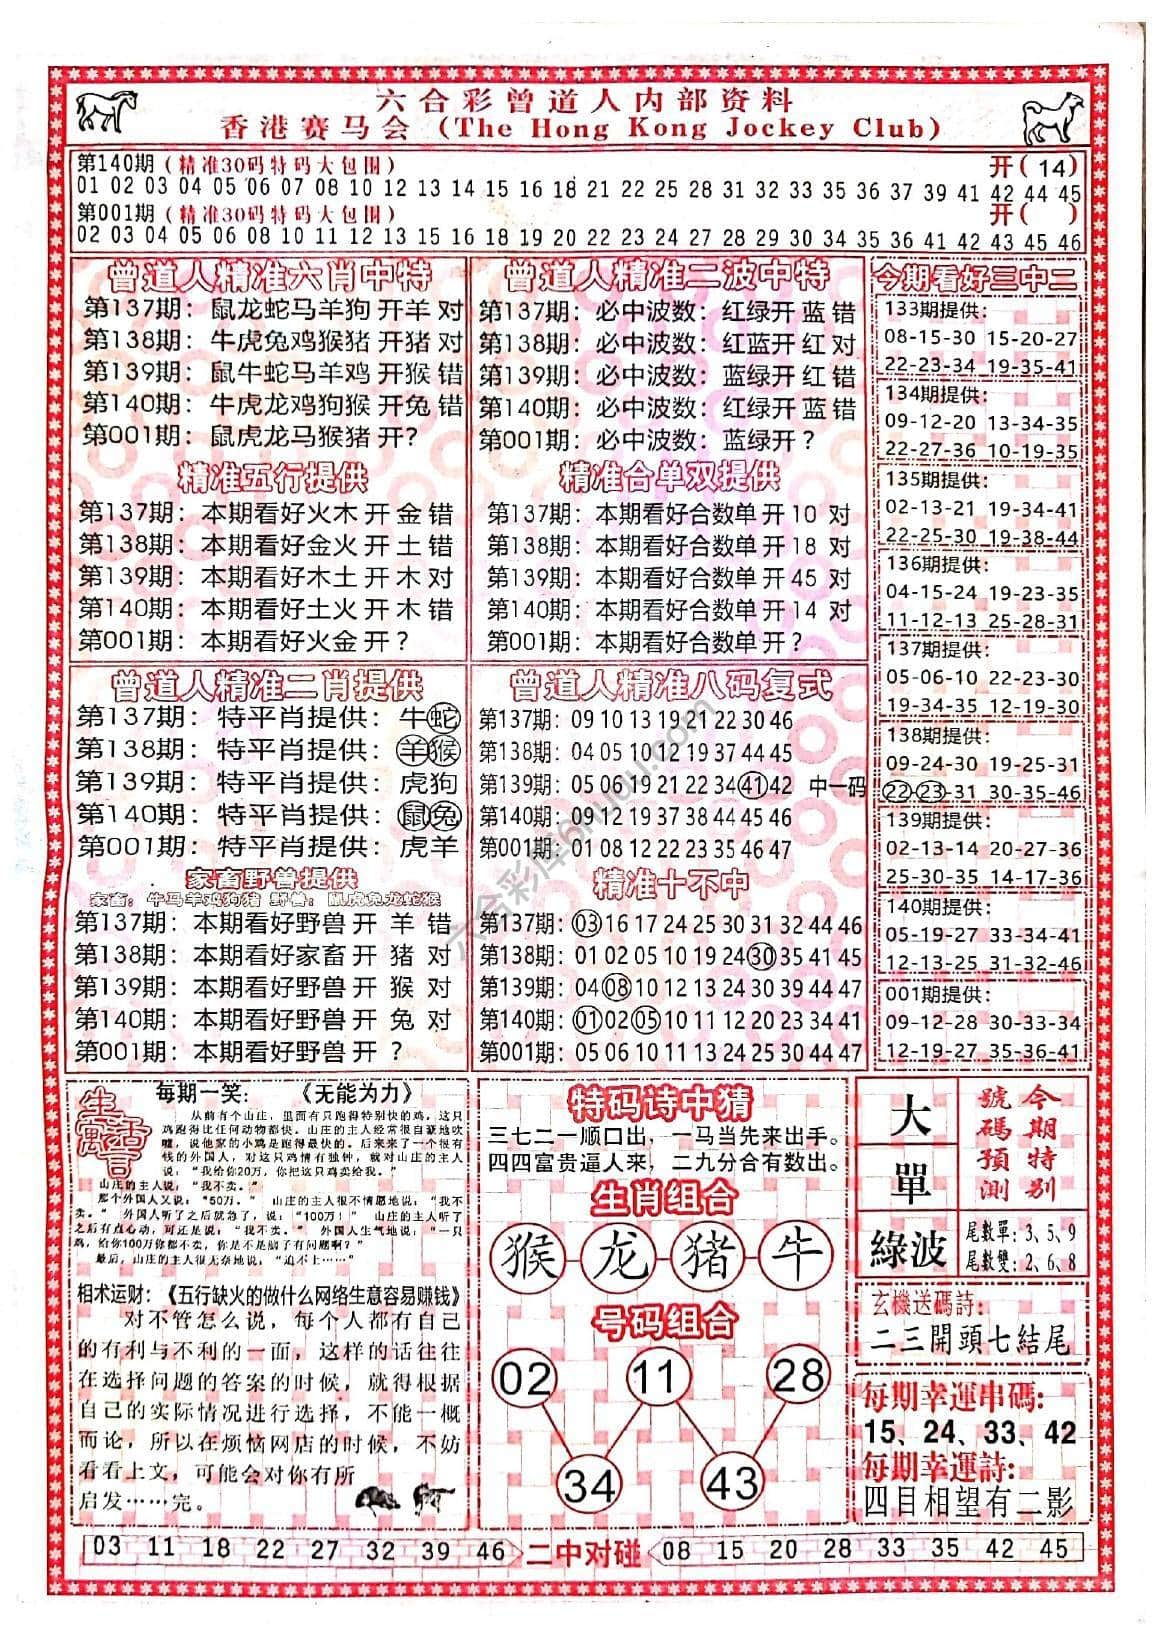 六合彩曾道人内部资料
香港赛马会 (The Hong Kong Jockey Club)
第140期 (精准30码特码大包围) 开( 14)
01 02 03 04 05 06 07 08 10 12 13 14 15 16 18 21 22 25 28 31 32 33 35 36 37 39 41 42 44 45
第001期 (精准30码特码大包围) 开( )
02 03 04 05 06 08 10 11 12 13 15 16 18 19 20 22 27 28 29 30 34 35 36 41 42 43 45 46
曾道人精准六肖中特
第137期：鼠龙蛇马羊狗开羊 对
第138期：牛虎兔鸡猴猪开猪 对
第139期：鼠牛蛇马羊鸡开猴 错
第140期：牛虎龙鸡狗猴开兔 错
第001期：鼠虎龙马猴猪开?
精准五行提供
第137期：本期看好火木开金错
第138期：本期看好金火开土错
第139期：本期看好木土开木对
第140期：本期看好土火开木错
第001期：本期看好火金开？
曾道人精准二波中特
第137期：必中波数：红绿开蓝错
第138期：必中波数：红蓝开红对
第139期：必中波数：蓝绿开红错
第140期：必中波数：红绿开蓝错
第001期：必中波数：蓝绿开？
精准合单双提供
第137期：本期看好合数单开10 对
第138期：本期看好合数单开18 对
第139期：本期看好合数单开45 对
第140期：本期看好合数单开14 对
第001期：本期看好合数单开？
今期看好三中二
133期提供：
08-15-30 15-20-27
22-23-34 19-35-41
134期提供：
09-12-20 13-34-35
22-27-36 10-19-35
135期提供：
02-13-21 19-34-41
22-25-30 19-38-44
136期提供：
04-15-24 19-23-35
11-12-13 25-28-31
137期提供：
05-06-10 22-23-30
19-34-35 12-19-30
138期提供：
09-24-30 19-25-31
22-23-31 30-35-46
139期提供：
02-13-14 20-27-36
25-30-35 14-18-31
140期提供：
05-19-27 33-34-41
12-13-25 31-32-46
001期提供：
09-12-28 30-33-34
12-19-27 35-36-41
曾道人精准二肖提供
第137期：特平肖提供：牛蛇
第138期：特平肖提供：羊猴
第139期：特平肖提供：虎狗
第140期：特平肖提供：鼠兔
第001期：特平肖提供：虎羊
家畜野兽提供
家畜：牛马羊鸡狗猪 野兽：鼠虎兔龙蛇猴
第137期：本期看好野兽开 羊 错
第138期：本期看好家畜开 猪 对
第139期：本期看好野兽开 猴 对
第140期：本期看好野兽开 兔 对
第001期：本期看好野兽开 ？
曾道人精准八码复式
第137期：09 10 13 19 21 22 30 46
第138期：04 05 10 12 19 37 44 45
第139期：05 06 19 21 22 34 41 42 中一码
第140期：09 12 19 37 38 44 45 46
第001期：01 08 12 22 23 35 46 47
精准十不中
第137期：03 16 17 24 25 30 31 32 44 46
第138期：01 02 05 10 19 24 30 35 41 45
第139期：04 08 10 12 13 24 30 39 44 47
第140期：01 02 05 10 11 12 20 23 34 41
第001期：05 06 10 11 24 25 30 34 44 47
六合彩库6huu.com
生活寓言
每期一笑：《无能为力》
从前有个山庄，里面有只跑得特别快的鸡。这只
鸡跑得比任何动物都快。山庄的主人经常很自豪地吹
嘘，说他家的小鸡是跑得最快的。后来来了一个很有
钱的外国人，对这只鸡情有独钟，就对山庄的主人
说：“我给你20万，你把这只鸡卖给我。”
山庄的主人说：“我不卖。”
那个外国人又说：“50万。” 山庄的主人很不情愿地说：“我不
卖。” 外国人听了之后就急了，说：“100万！” 山庄的主人听了
之后有点心动，可还是说：“我不卖。” 外国人生气地说：“一只
鸡，给你100万你都不卖，你是不是脑子有问题啊？”
最后，山庄的主人很无奈地说：“追不上……”
相术运财：《五行缺火的做什么网络生意容易赚钱》
对不管怎么说，每个人都有自己
的有利与不利的一面，这样的话往往
在选择问题的答案的时候，就得根据
自己的实际情况进行选择，不能一概
而论，所以在烦恼网店的时候，不妨
看看上文，可能会对你有所
启发……完。
特码诗中猜
三七二一顺口出，一马当先来出手。
四四富贵逼人来，二九分合有数出。
生肖组合
猴 龙 猪 牛
号码组合
02 11 28
34 43
大
單
綠波
今期特别
號碼預測
尾數單：3、5、9
尾數雙：2、6、8
玄機送碼詩：
二三開頭七結尾
每期幸運串碼：
15、24、33、42
每期幸運詩：
四目相望有二影
03 11 18 22 27 32 39 46 二中对碰 08 15 20 28 33 35 42 45